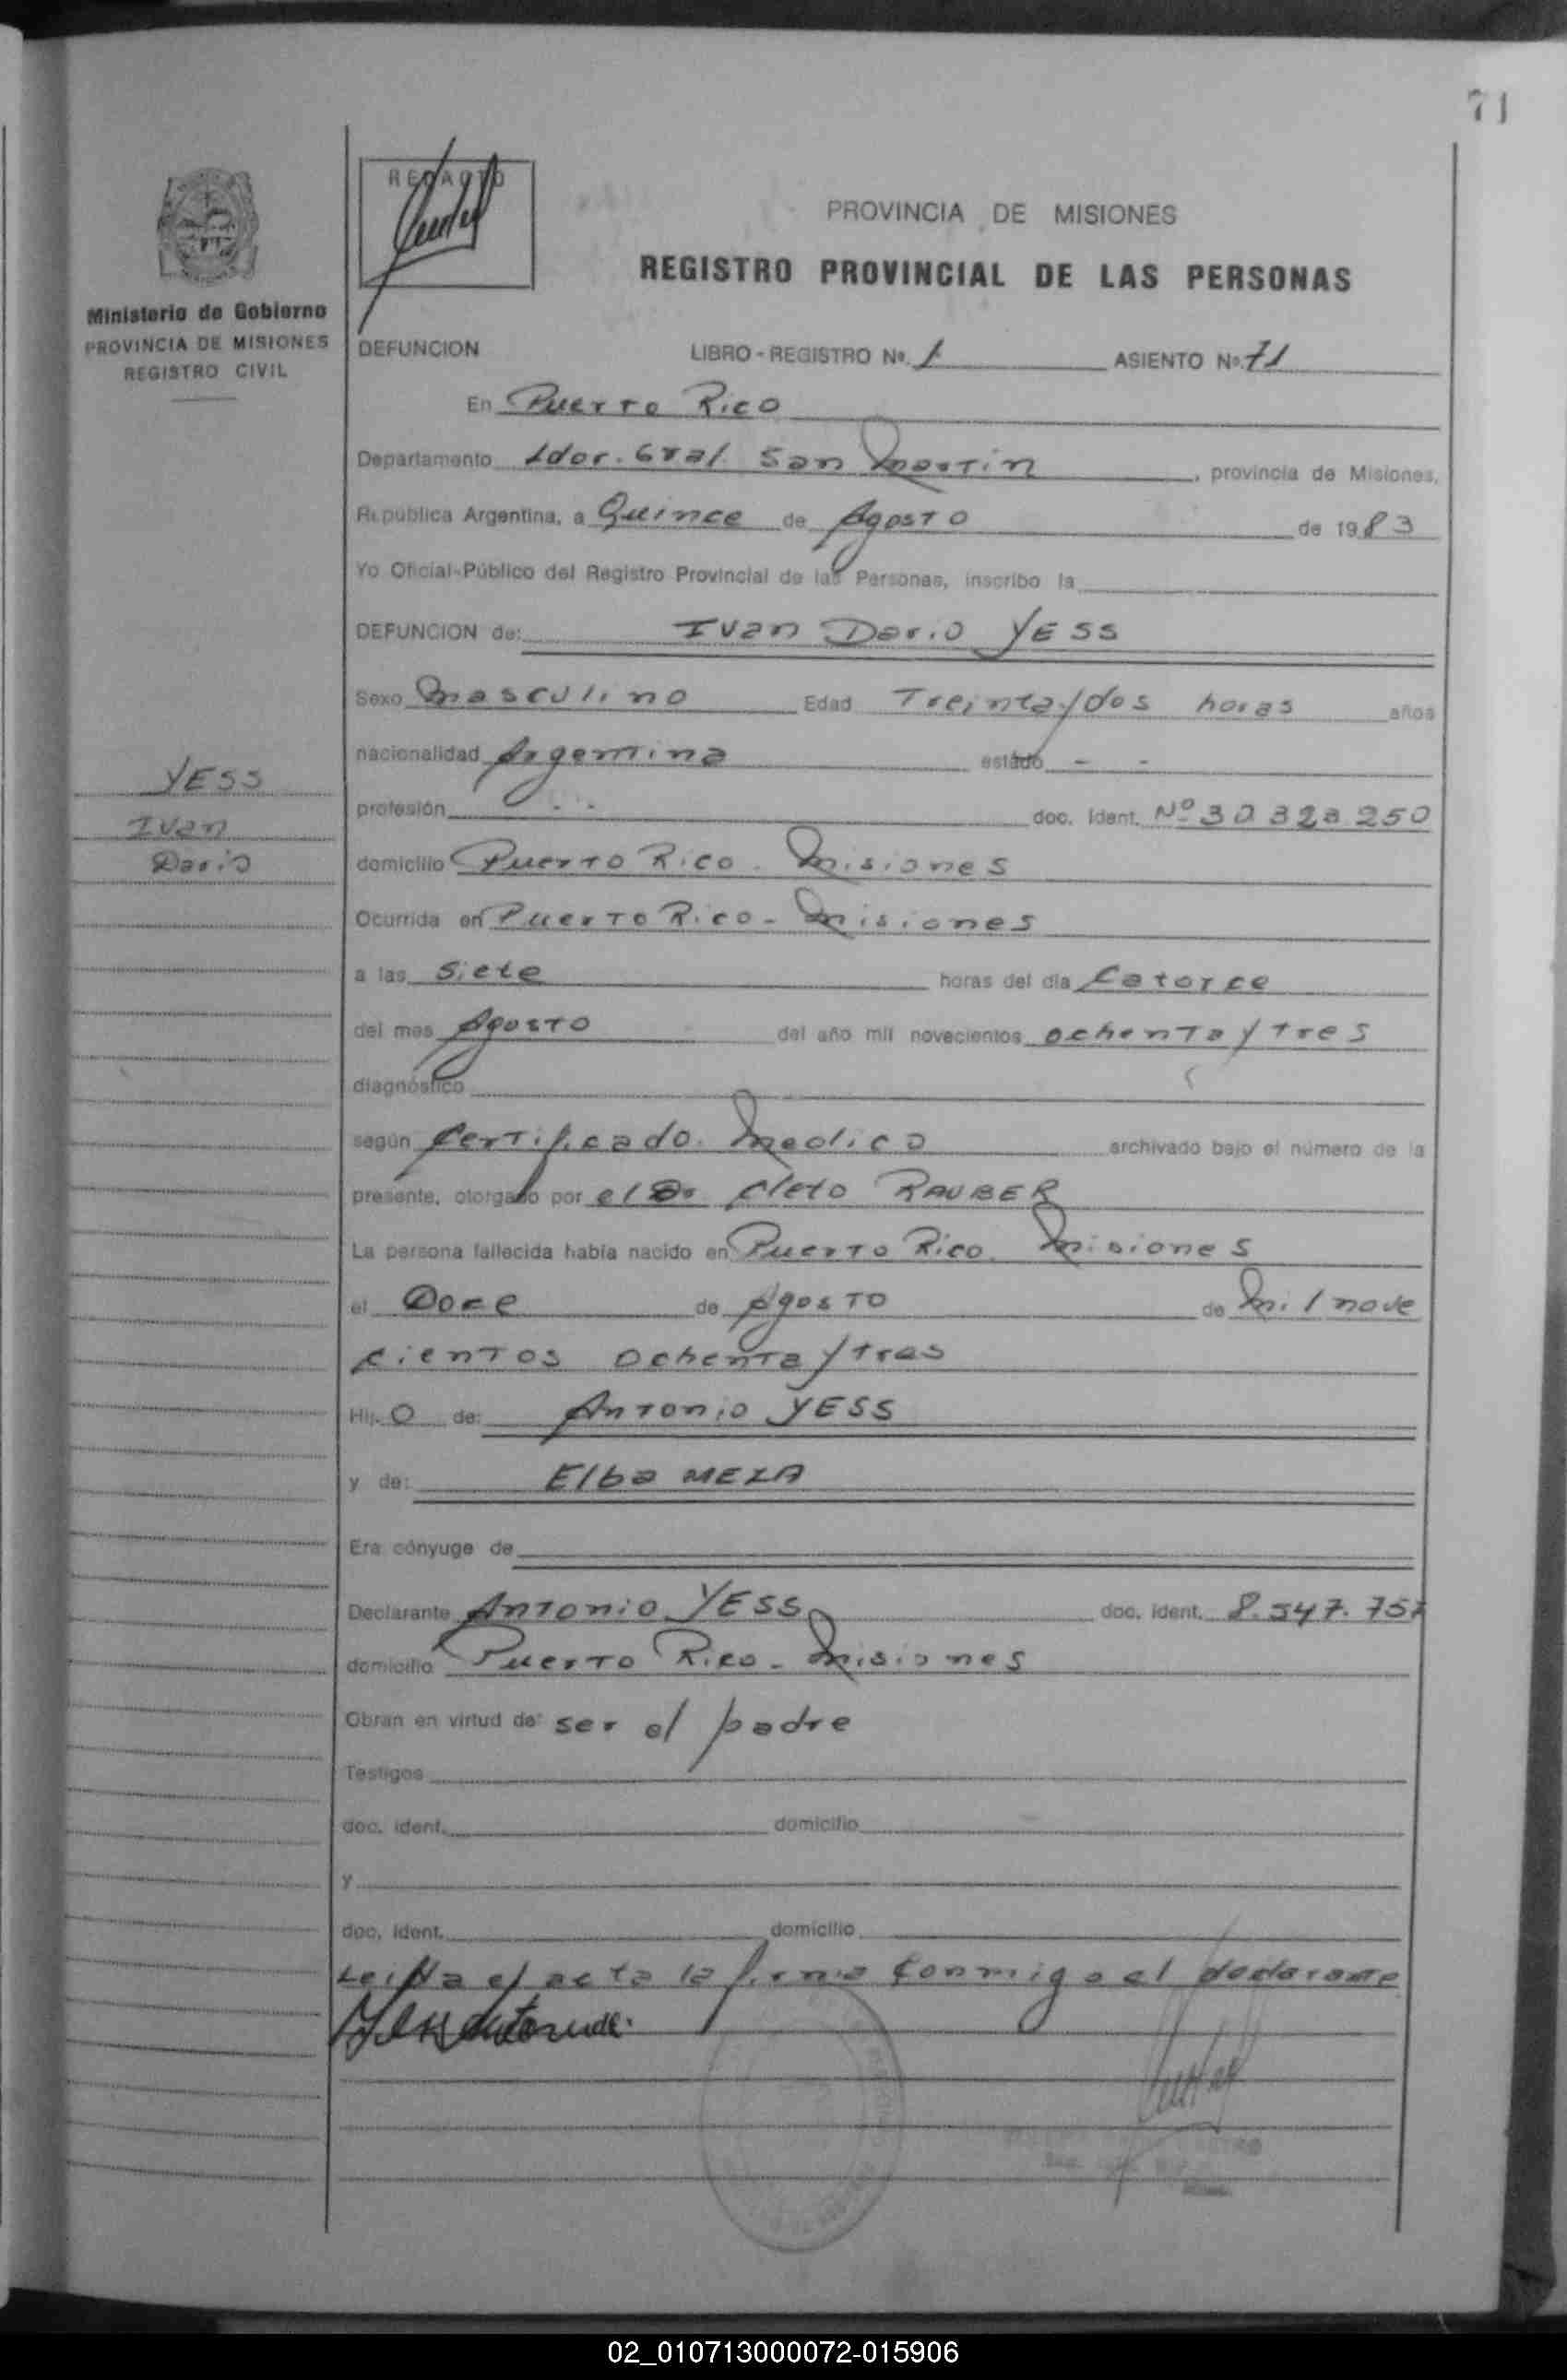 71
REDACTO
PROVINCIA DE MISIONES
REGISTRO PROVINCIAL DE LAS PERSONAS
Ministerio de Gobierno
PROVINCIA DE MISIONES
REGISTRO CIVIL
DEFUNCION LIBRO - REGISTRO Nº. 1 ASIENTO Nº. 71
En Puerto Rico
Departamento Ldor. Gral San Martin, provincia de Misiones,
República Argentina, a Quince de Agosto de 1983
Yo Oficial-Público del Registro Provincial de las Personas, inscribo la
DEFUNCION de: Ivan Dario YESS
Sexo Masculino Edad Treinta y dos horas años
nacionalidad Argentina estado - -
profesión - - doc. Ident. Nº 30 323 250
YESS
Ivan
Dario
domicilio Puerto Rico - Misiones
Ocurrida en Puerto Rico - Misiones
a las Siete horas del día Catorce
del mes Agosto del año mil novecientos ochenta y tres
diagnóstico
según Certificado Medico archivado bajo el número de la
presente, otorgado por el Dr Cleto RAUBER
La persona fallecida había nacido en Puerto Rico Misiones
el Doce de Agosto de Mil nove
cientos ochenta y tres
Hijo de: Antonio YESS
y de: Elba MEZA
Era cónyuge de
Declarante Antonio YESS doc. ident. 8.547.757
domicilio Puerto Rico - Misiones
Obran en virtud de: ser el padre
Testigos
doc. ident. domicilio
y
doc. ident. domicilio
Leida el acta la firma conmigo el declarante
02_010713000072-015906